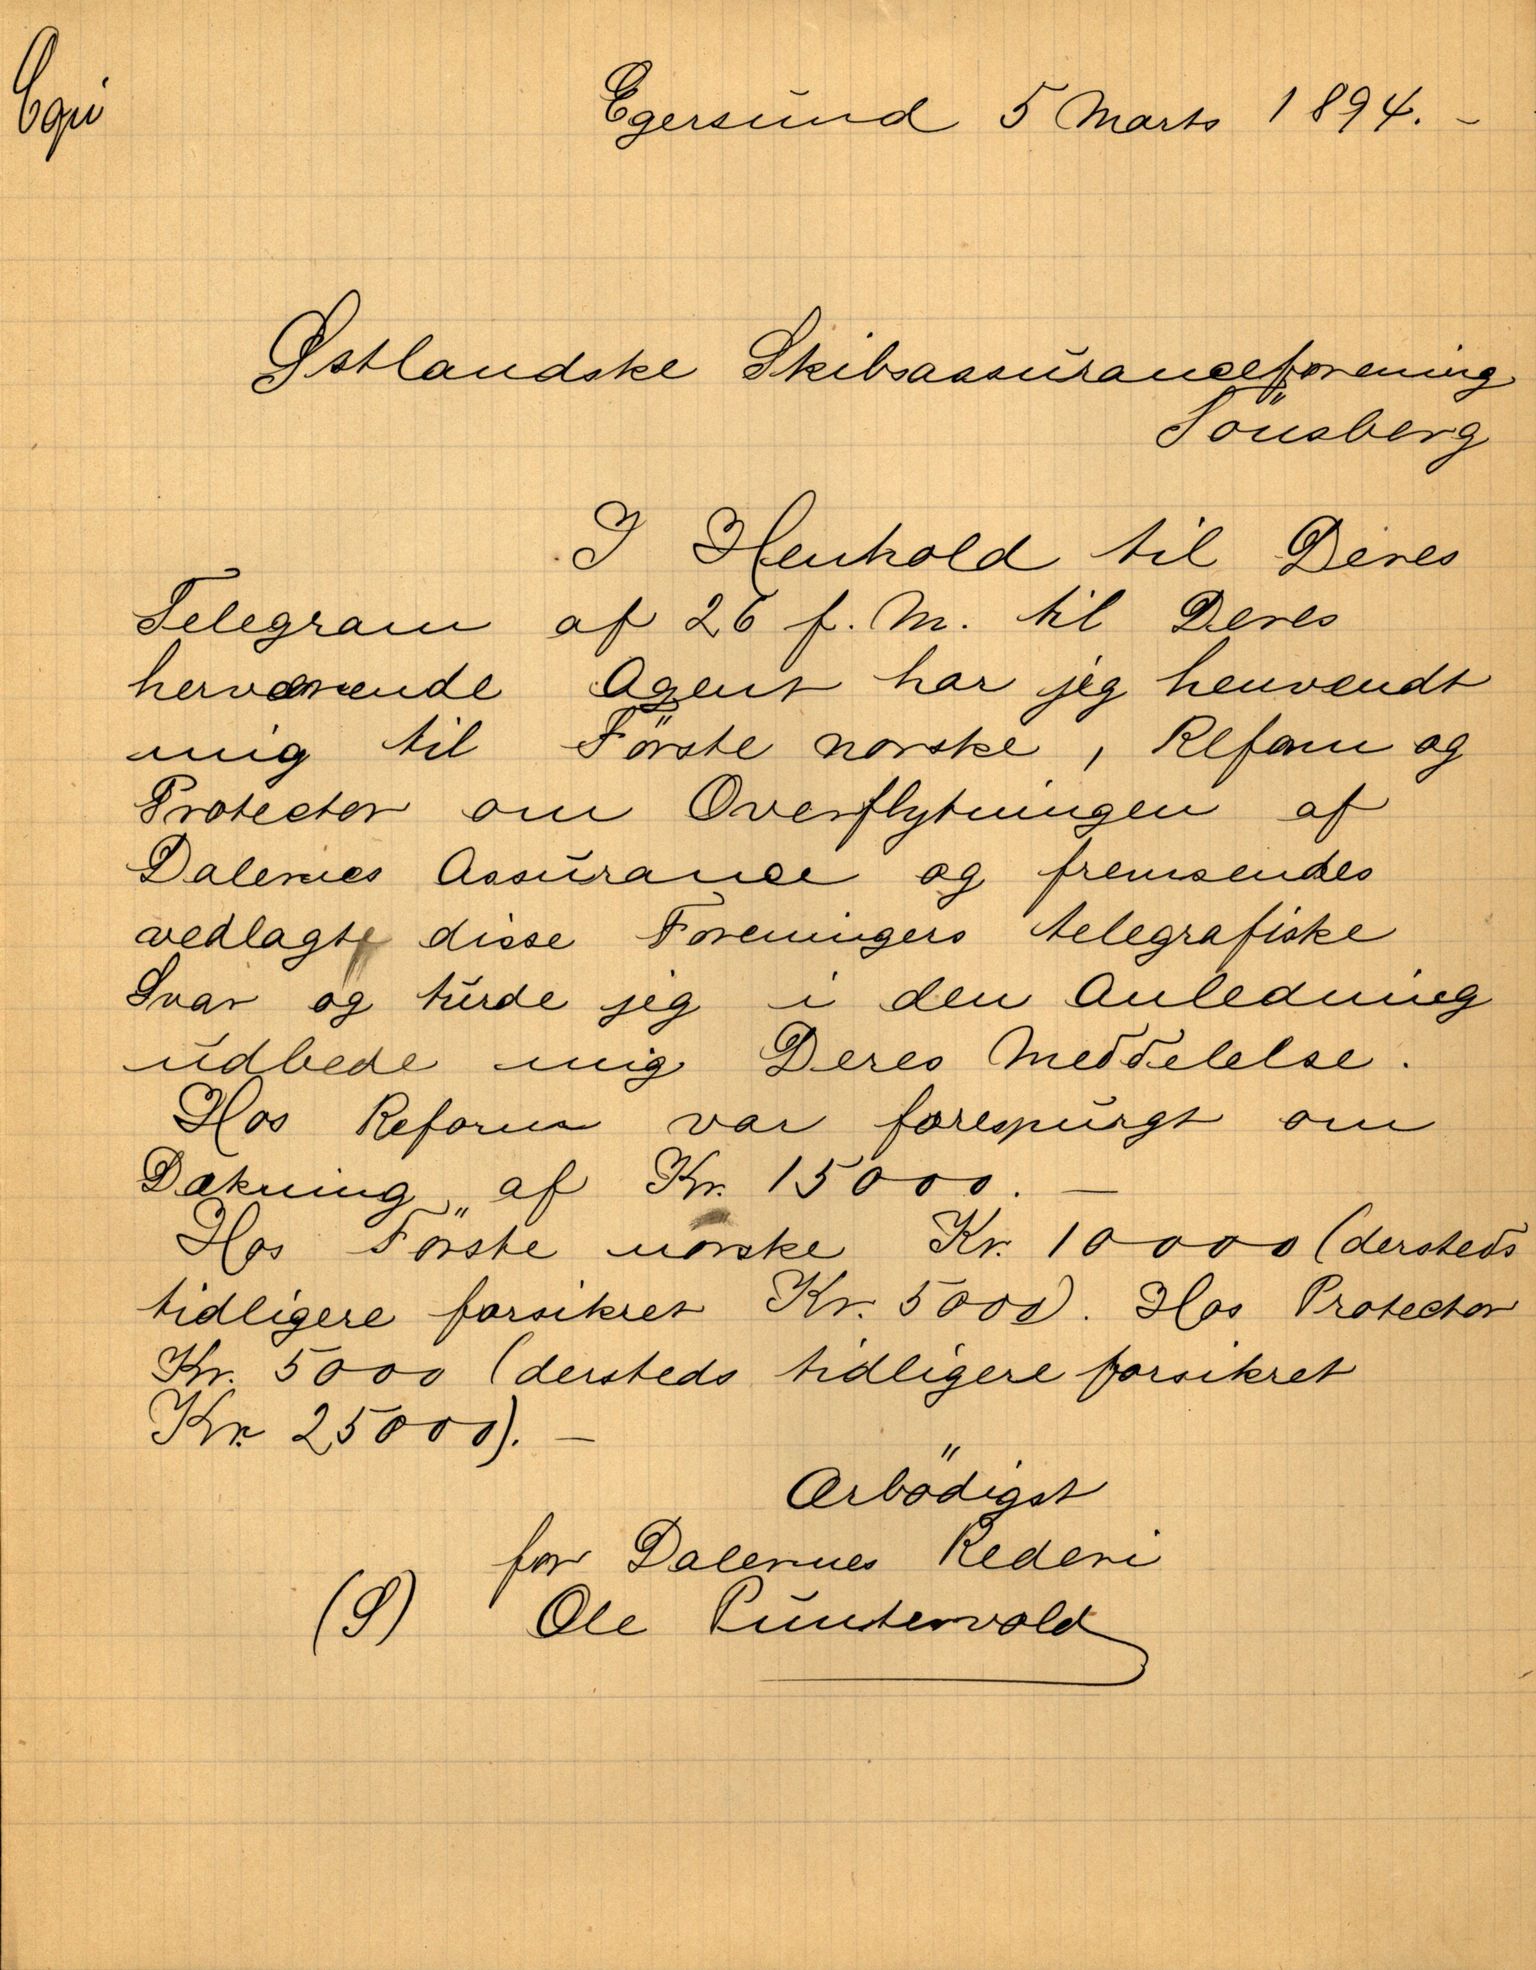 Copi
Egersund 5 Marts 1894. -
Østlandske Skibsassuranceforening
Tönsberg
I Henhold til Deres
Telegram af 26 f. M. til Deres
herværende Agent har jeg henvendt
mig til Förste norske, Reform og
Protector om Overflytningen af
Dalernes Assurance og fremsendes
vedlagt disse Foreningers telegrafiske
Svar og turde jeg i den Anledning
udbede mig Deres Meddelelse.
Hos Reform var forespurgt om
Dækning af Kr. 15000. —
Hos Förste norske Kr. 10000 (dersteds
tidligere forsikret Kr. 5000). Hos Protector
Kr. 5000 (dersteds tidligere forsikret
Kr. 25000). —
Ærbödigst
for Dalernes Rederi
(S) Ole Puntervold